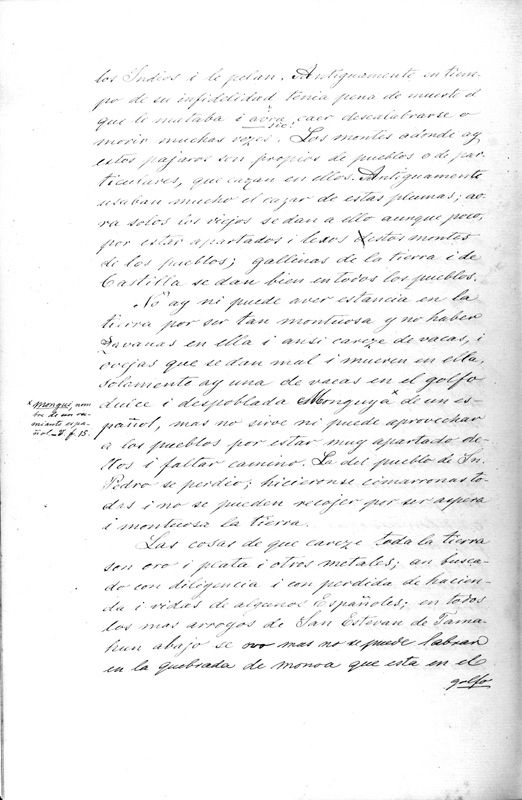 los Indios i le pelan. Antiguamente en tiem-
po de su infidelidad tenia pena de muerte el
que le mataba i aora caer descalabrarse o
sic.
morir muchas vezes. Los montes adonde ay
estos pajaros son propios de pueblos o de par-
ticulares, que cazan en ellos. Antiguamente
usaban mucho el cazar de estas plumas; ao-
ra solos los viejos se dan a ello aunque poco,
por estar apartados i lexos destos montes
de los pueblos; gallinas de la tierra i de
Castilla se dan bien en todos los pueblos.
No ay ni puede aver estancia en la
tierra por ser tan montuosa y no haber
Savanas en ella i ansi careze de vacas, i
ovejas que se dan mal i mueren en ella,
solamente ay una de vacas en el golfo
dulce i despoblada Monguya x de un es-
pañol, mas no sirve ni puede aprovechar
a los pueblos por estar muy apartado de-
llos i faltar camino. La del pueblo de Sn.
Pedro se perdio; hicieronse cimarronas to-
das i no se pueden recojer por ser aspera
i montuosa la tierra.
Las cosas de que careze toda la tierra
son oro i plata i otros metales; an busca-
do con diligencia i con perdida de hacien-
da i vidas de algunos Españoles; en todos
los mas arroyos de San Estevan de Tama-
hun abajo se ovo mas no se puede labrar
en la quebrada de monoa que esta en el
golfo
x Mongui, nom-
bre de un
español. V. f. 15.